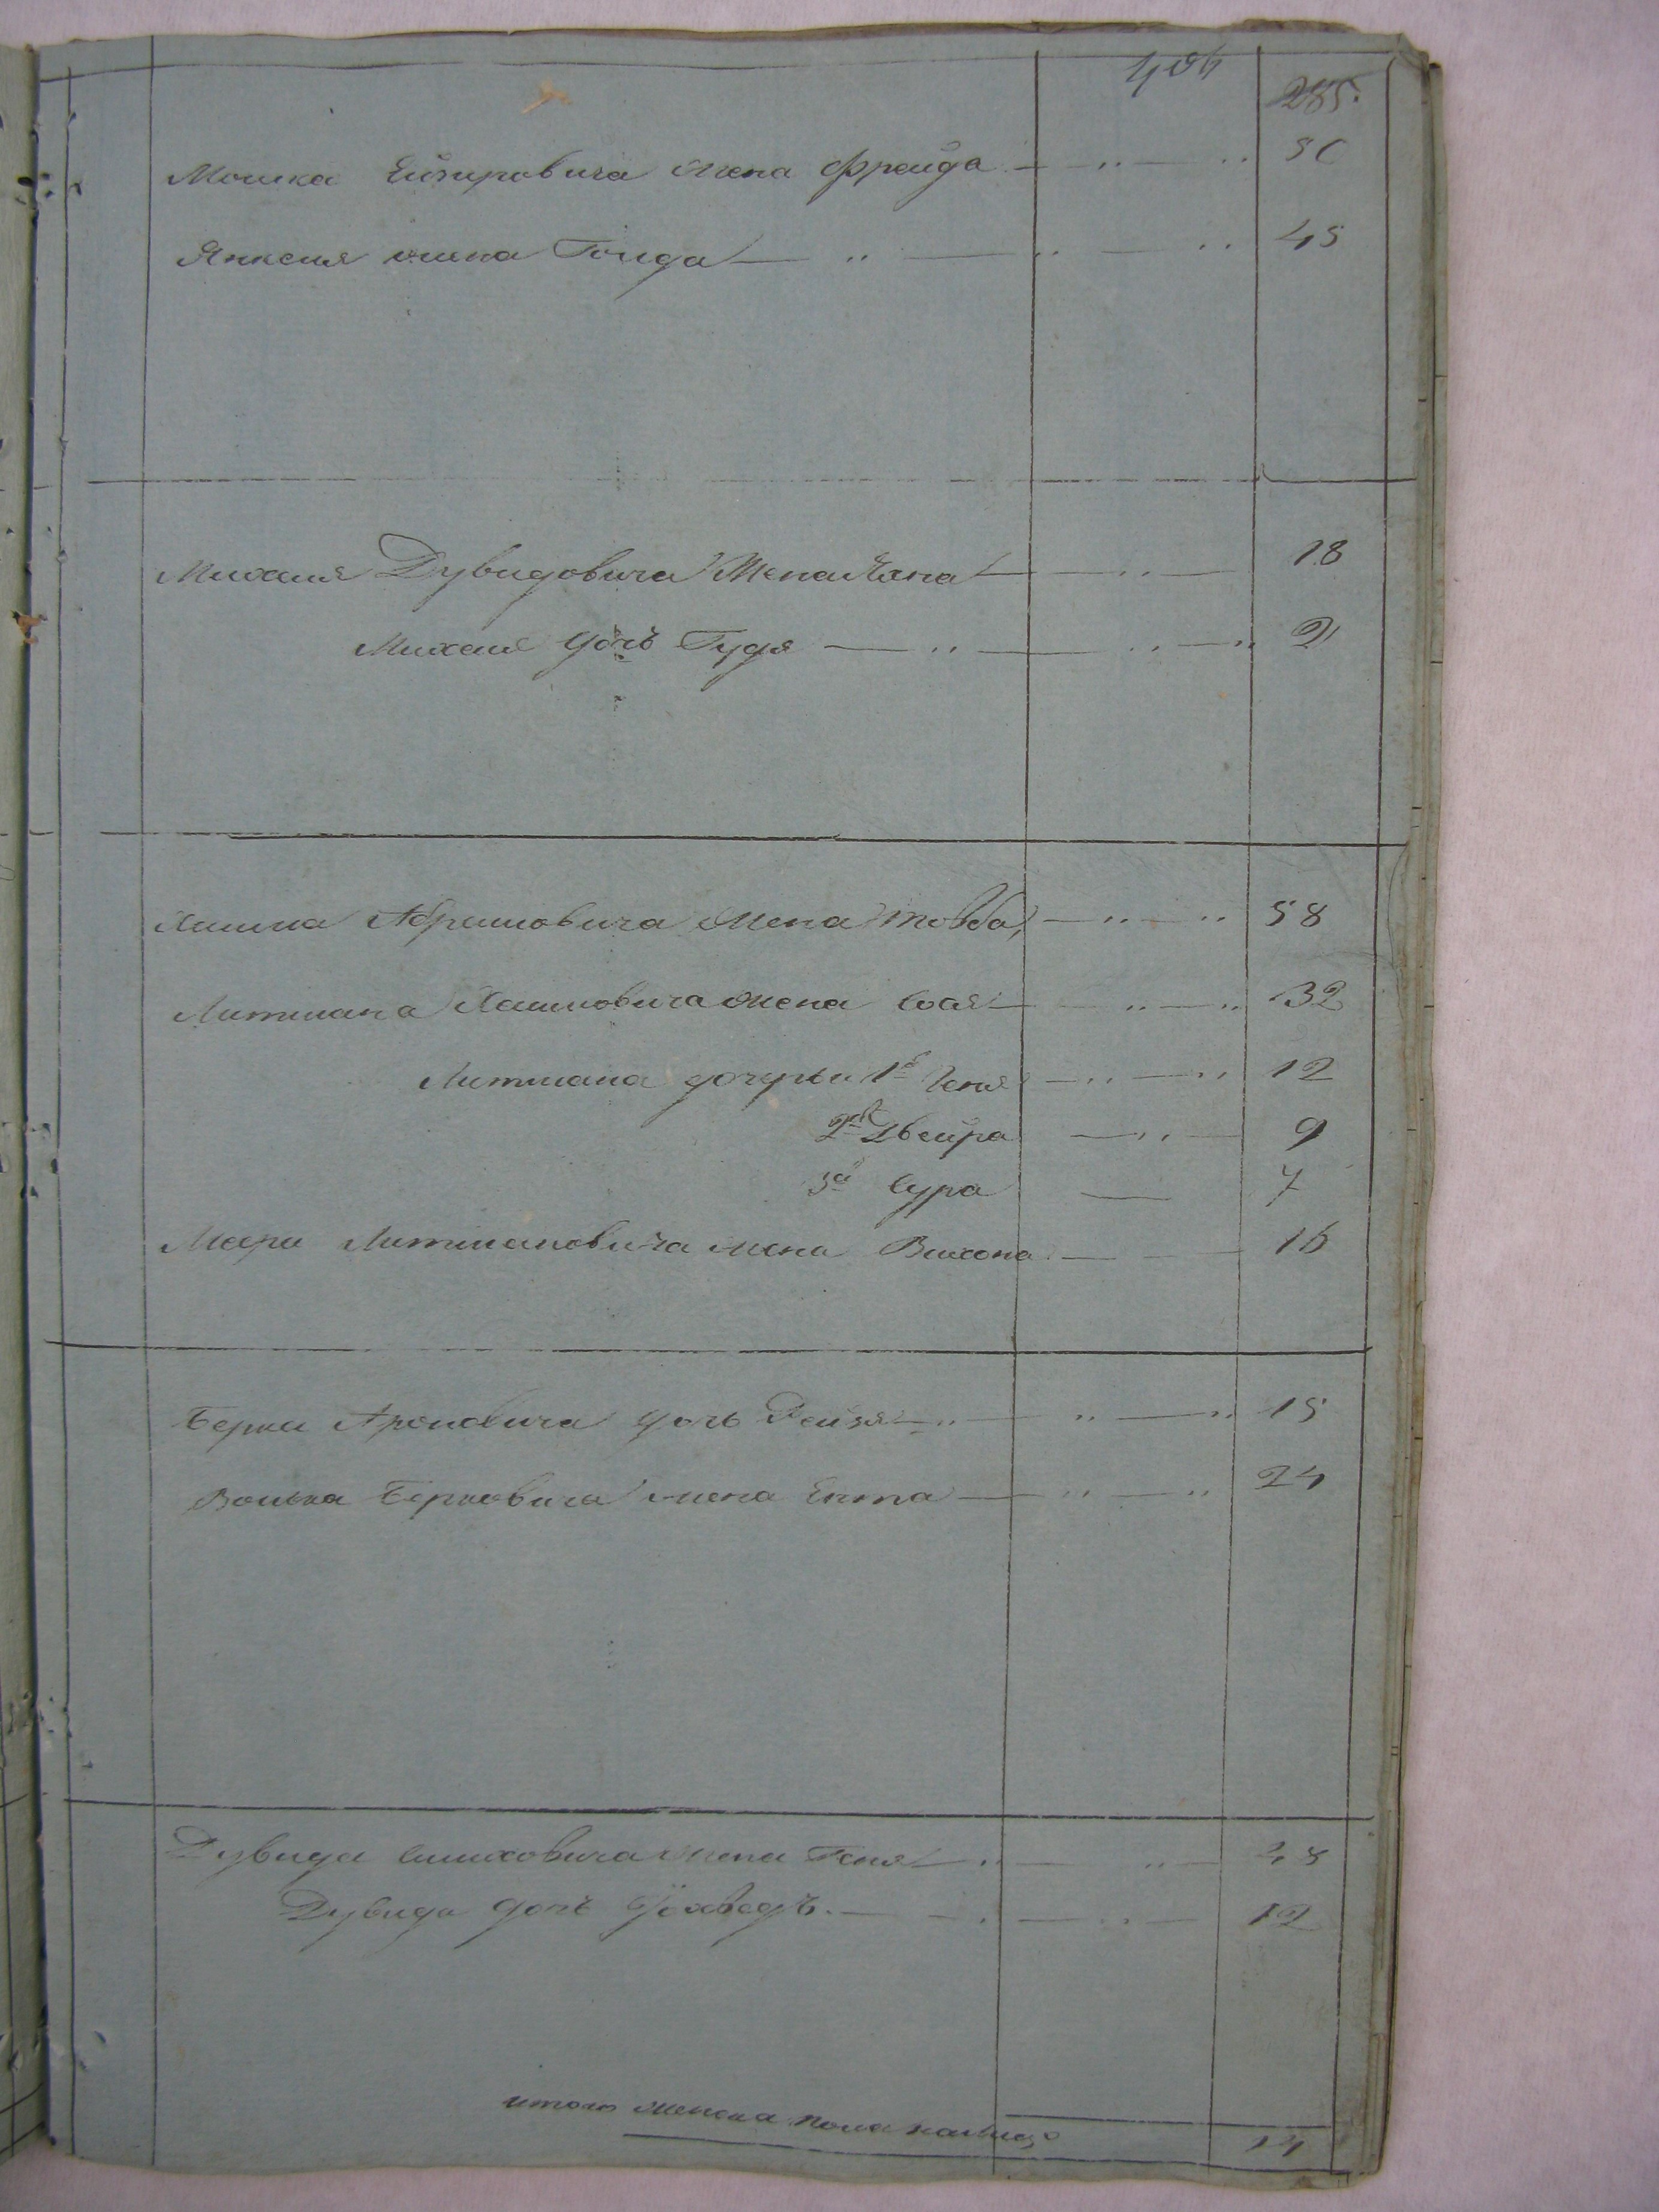 285.
Мошка Ейзыровича жена Фрейда 50
Янкеля жена Голда 45
Михеля Дувидовича Жена Хана 18
Михеля дочь Гудя 2
Хаима Абрамовича Жена Товба 58
Литмана Хаимовича жена Соля 32
Литмана дочери 1я Геня 12
2я Двейра 9
3я Сура 7
Меера Литмановича жена 16
Берка Ароновича дочь Рейзя 15
Волька Берковича жена Ента 24
Дувида жена Геня
Дувида дочь Йохведъ 12
итого женска пола налицо 14